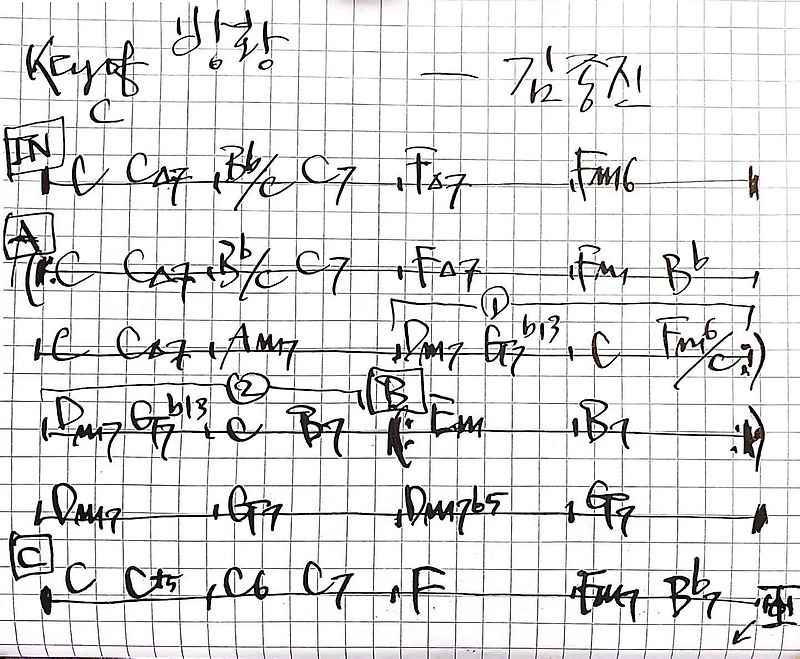 방황
Key of C
— 김종진
IN
C CΔ7 B♭/C C7 FΔ7 Fm6
A
C CΔ7 B♭/C C7 FΔ7 Fm7 B♭
①
C CΔ7 Am7 Dm7 G7♭13 C Fm6/C
② B
Dm7 G7♭13 C B7 Em B7
Dm7 G7 Dm7b5 G7
C
C C+5 C6 C7 F Fm7 B♭7